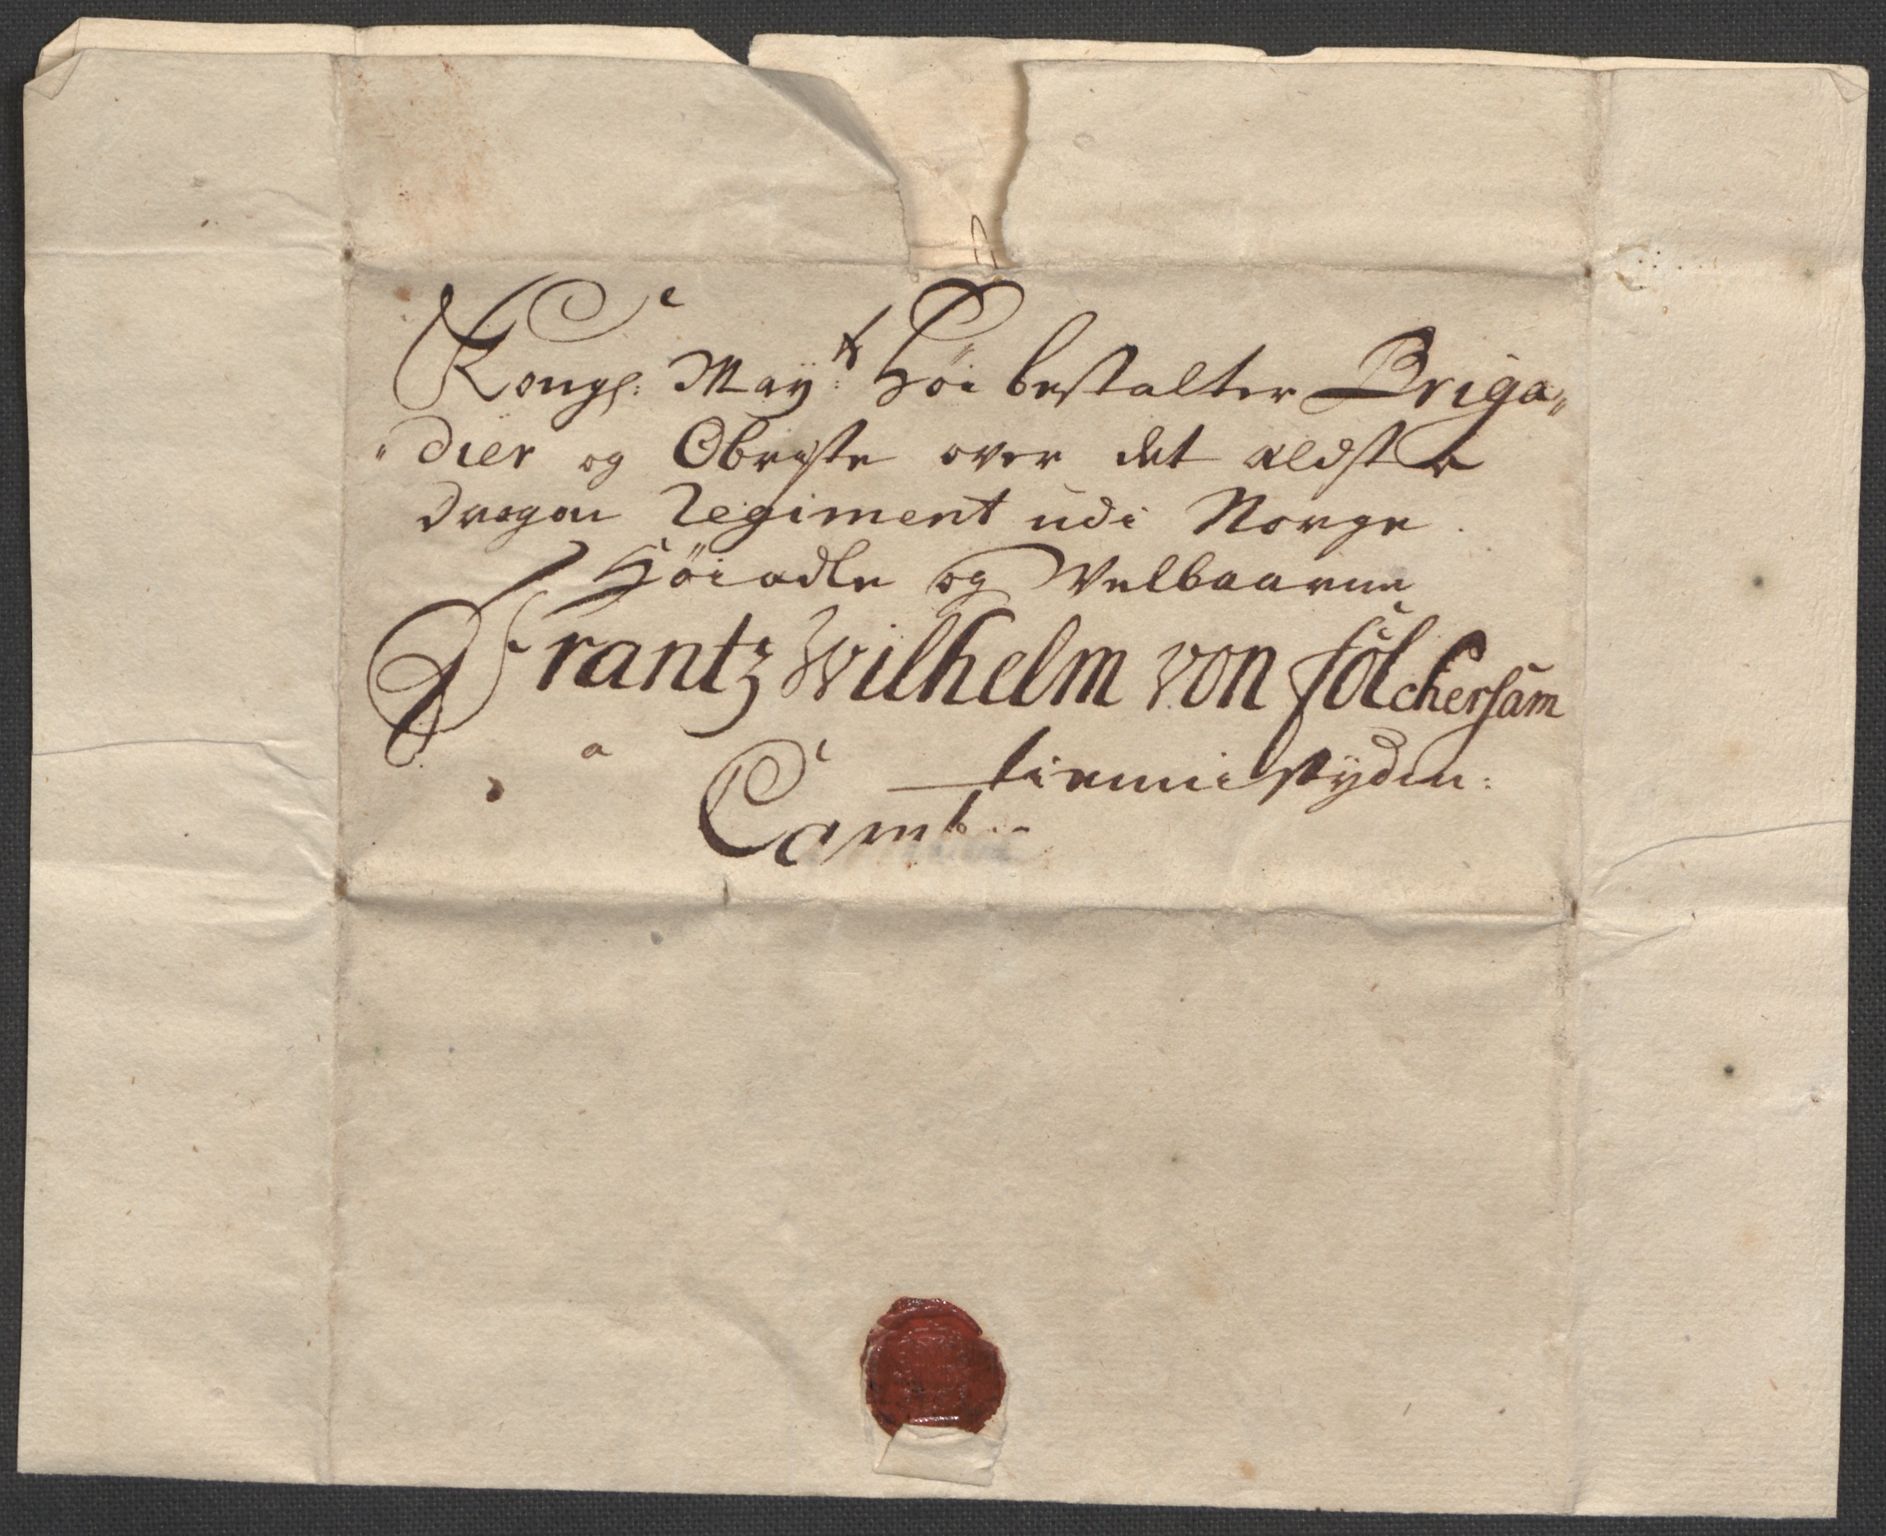 Kongl: May:ts Høi bestalter Briga„
„dier og Obriste over det ældste
Dragon Regiment udi Norge.
Høiædle og Velbaarne
Frantz Wilhelm von fölckersam
a
tienni